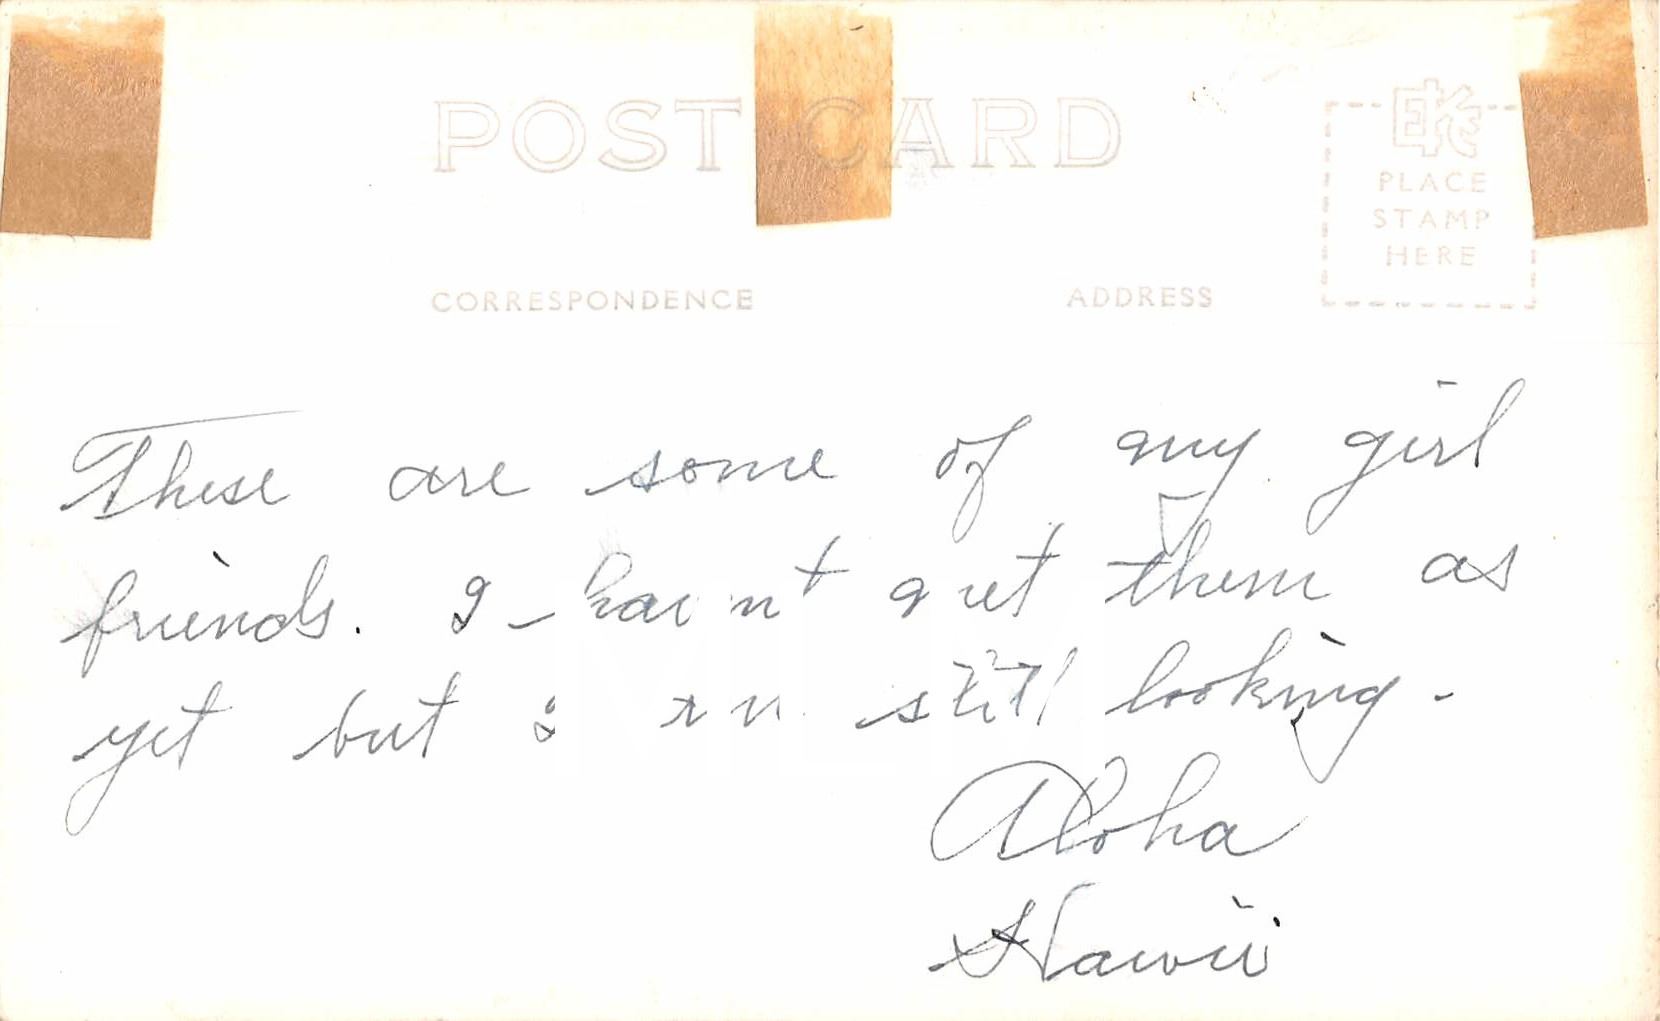 POST CARD
EKC
PLACE
STAMP
HERE
CORRESPONDENCE ADDRESS
These are some of my girl
friends. I havn't met them as
yet but I am still looking.
Aloha
Hawii